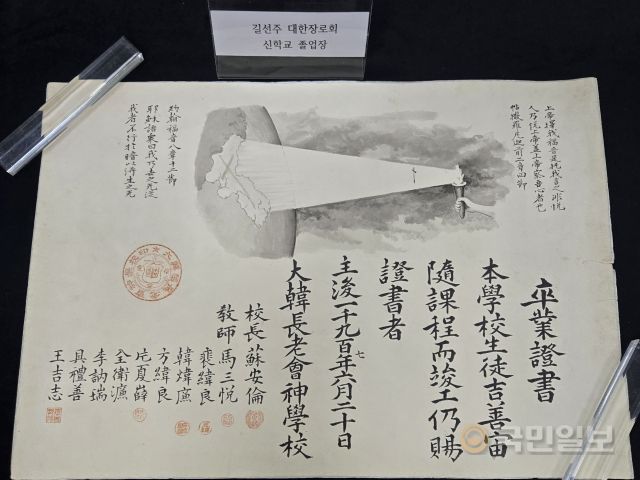 길선주 대한장로회
신학교 졸업장
上帝擇我福音是托我言之非悅
人乃悅上帝蓋上帝察吾心者也
帖撒羅尼迦前二章四節
約翰福音八章十二節
耶穌語衆曰我乃世之光從
我者不行於暗必得生之光
卒業證書
本學校生徒吉善宙
隨課程而竣工仍賜
證書者
主後一千九百七年六月二十日
大韓長老會神學校
校長 蘇安倫
敎師 馬三悅
裵緯良
韓煒廉
方緯良
片夏薛
全衛廉
李訥瑞
具禮善
王吉志
국민일보